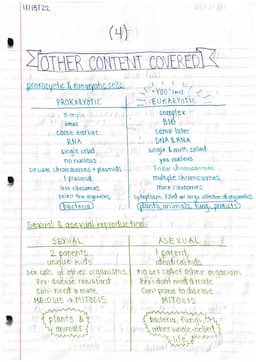 11/15/22
(4)
OTHER CONTENT COVERED!
prokaryotic & eukaryotic cells:
PROKARYOTIC
"YOO" (me)
EUKARYOTIC
simple
complex
small
BIG
came earlier
came later
RNA
DNA & RNA
single celled
single & multi celled
no nucleus
yes nucleus
circular chromosomes + plasmids
linear chromosomes
1 plasmid
multiple chromosomes
less ribosomes
more ribosomes
select few organelles
cytoplasm filled w/ large collection of organelles
(bacteria)
(plants, animals, fungi, protists)
sexual & asexual reproduction:
SEXUAL
ASEXUAL
2 parents
1 parent
unique kids
identical kids
sex cells of other organisms
no sex cell of other organism
Pro: disease resistant
Pro: dont need a mate
Con: need a mate
Con: prone to disease
MEIOSIS & MITOSIS
MITOSIS
plants &
animals
bacteria, fungi,
other single-celled
life